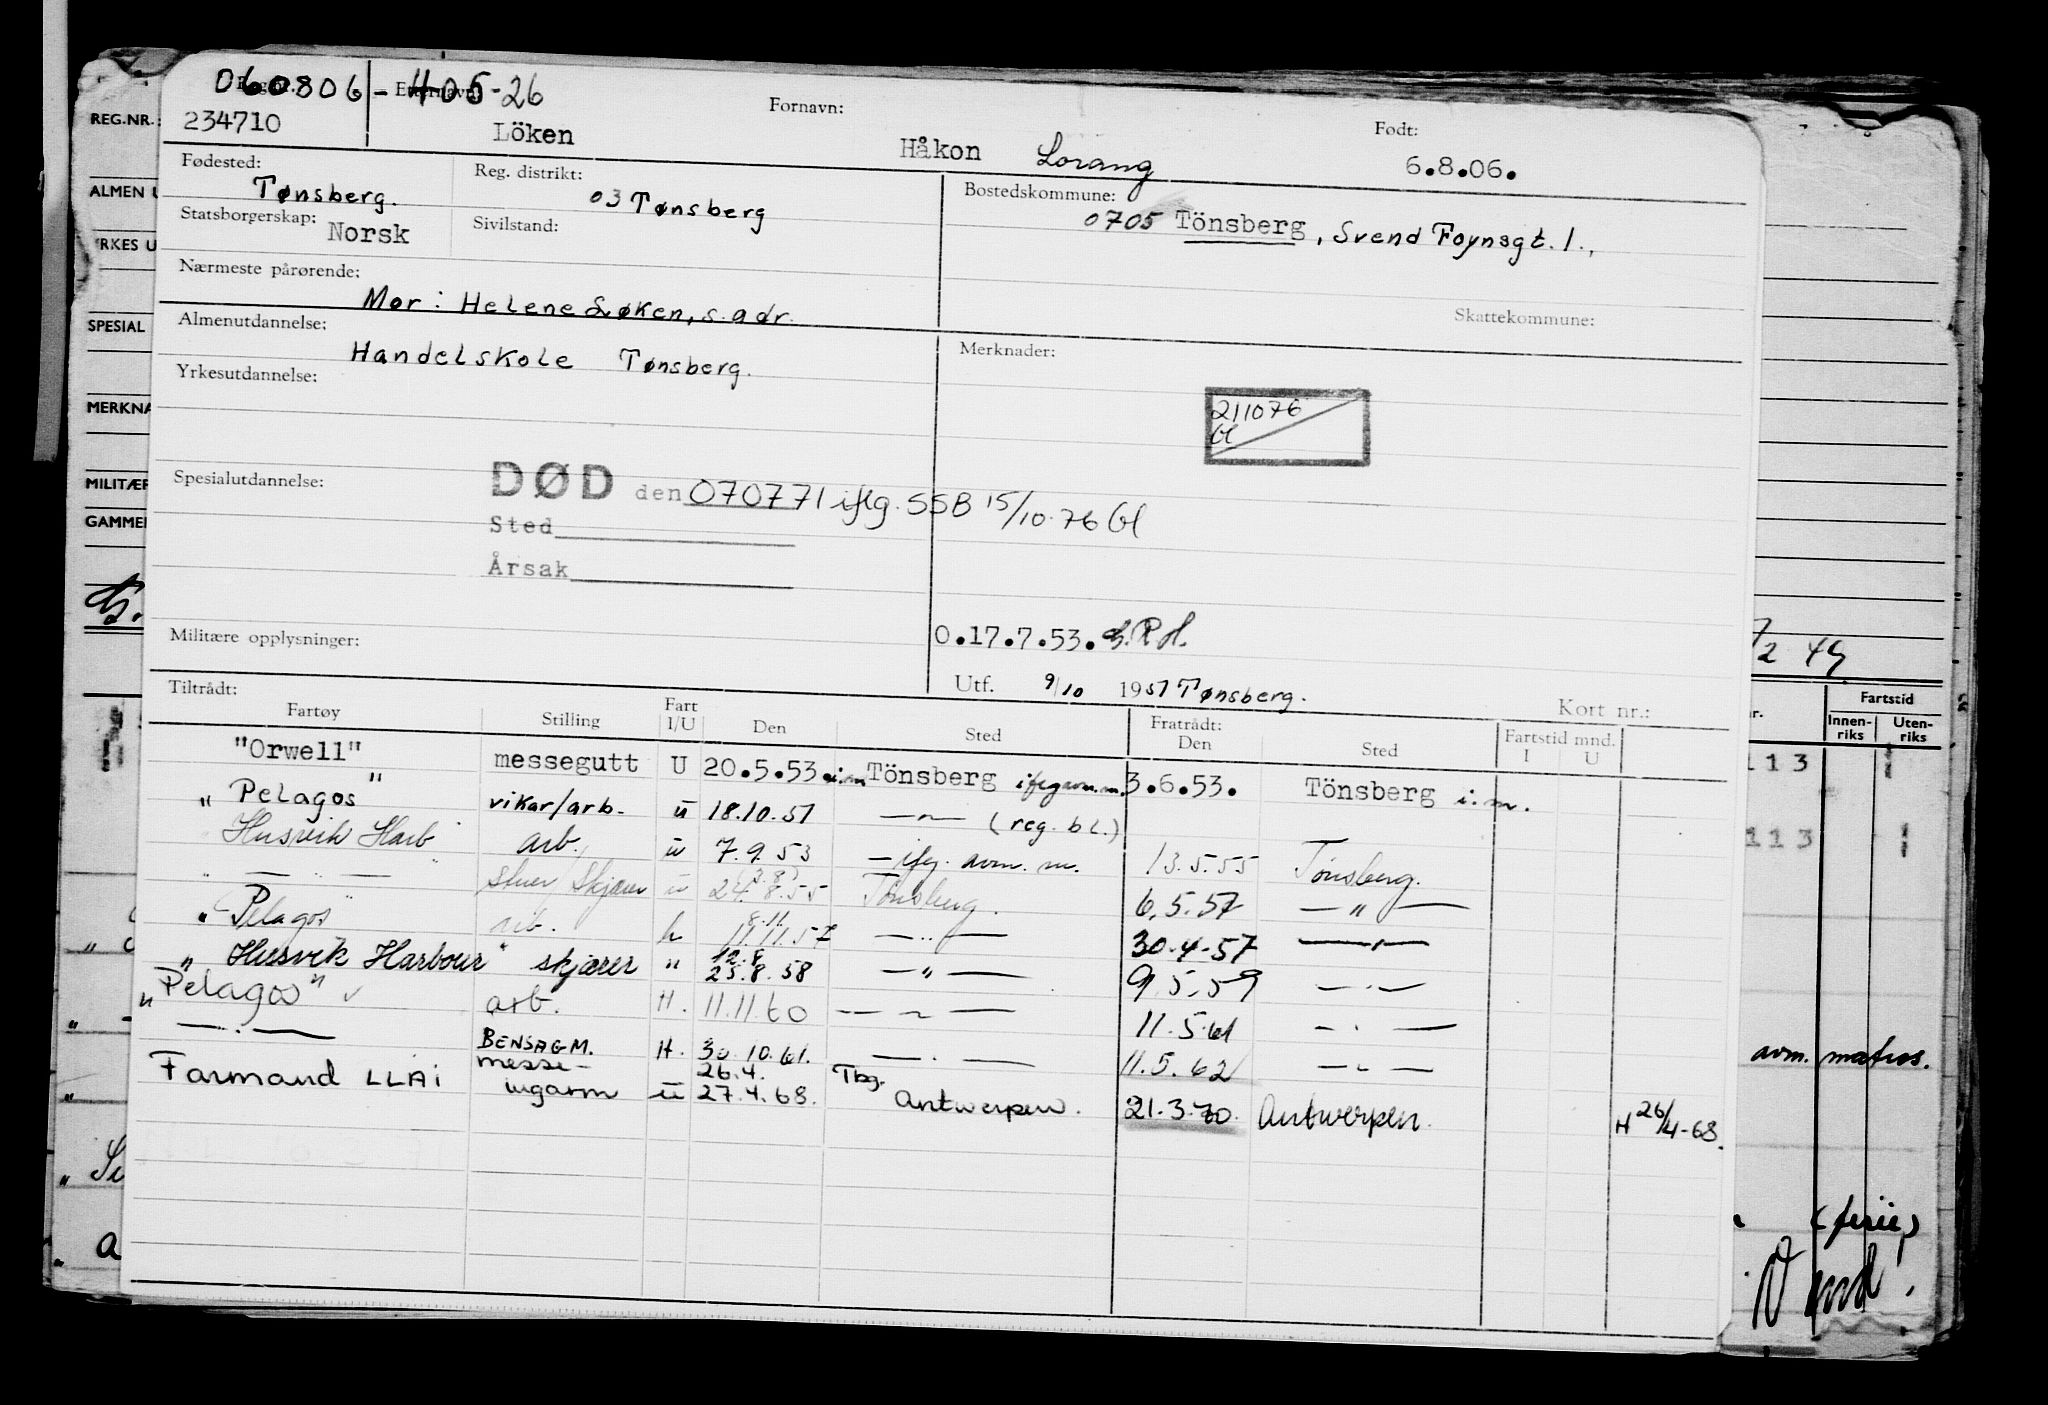 060806 - 405-26
Reg.nr. Etternavn: Fornavn: Født:
234710 Löken Håkon Lorang 6.8.06.
Fødested: Tønsberg. Reg. distrikt: 03 Tønsberg Bostedskommune: 0705 Tönsberg, Svend Foynsgt. 1.,
Statsborgerskap: Norsk Sivilstand:
Nærmeste pårørende:
Mor: Helene Løken, s. adr. Skattekommune:
Almenutdannelse: Handelskole Tønsberg. Merknader:
Yrkesutdannelse:
211076
Gl
Spesialutdannelse:
DØD den 070771 iflg. SSB 15/10.76 Gl
Sted
Årsak
Militære opplysninger: O.17.7.53.
Utf. 9/10 1957 Tønsberg. Kort nr.:
Tiltrådt: Fratrådt:
Fartøy Stilling Fart I/U Den Sted Den Sted Fartstid mnd. I U
"Orwell" messegutt U 20.5.53. i.m Tönsberg 3.6.53. Tönsberg i.m.
"Pelagos" vikar/arb. u 18.10.51 —"— (reg. bl.)
Husvik Harb arb. u 7.9.53 — ifg. avm. m. 13.5.55 Tønsberg.
" — " — " Skjærer u 24.8.55 Tønsberg. 6.5.57 — " —
"Pelagos" arb. h 8.11. 11.11.57 — " — 30.4-57 — " —
"Husvik Harbour" skjærer " 12.8 25.8.58 — " — 9.5.59 — " —
"Pelagos" arb. H. 11.11.60 — " — 11.5.61 — " —
— " — BENSAGM. H. 30.10.61. — " — 11.5.62 — " —
Farmand LLAI messe- ungdom u 26.4. 27.4.68. Tbg. Antwerpen. 21.3.70. Antwerpen. H 26/4-68.
REG.NR.:
ALMEN U
YRKES U
SPESIAL
MERKNA
MILITÆR
GAMMEL
/2 49
Fartstid
Innen-riks Uten-riks
113
113
avm. matros.
(ferie)